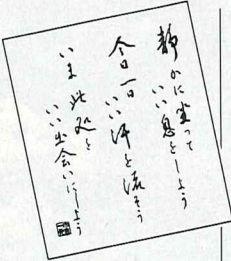 静かに坐って
いい息をしよう
今日一日
いい汗を流そう
いま此処を
いい出会いにしよう